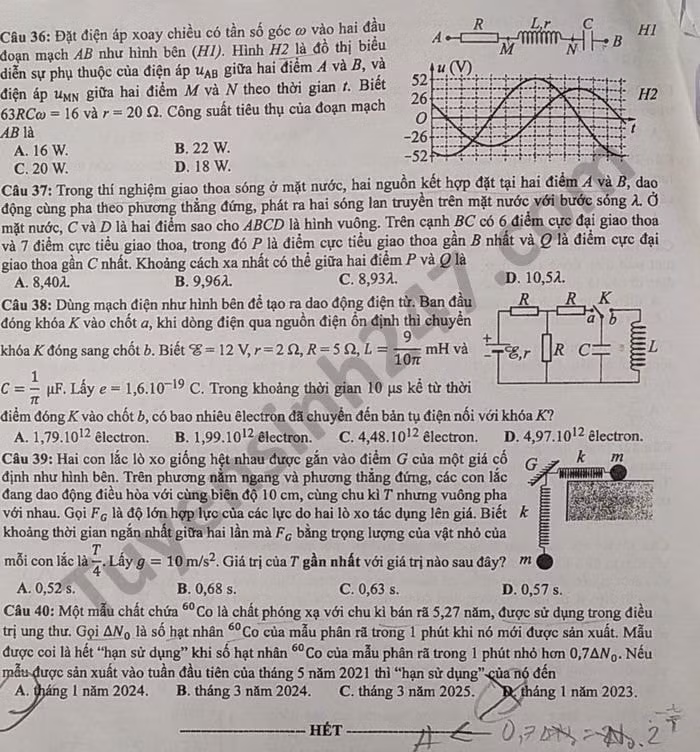 Câu 36: Đặt điện áp xoay chiều có tần số góc ω vào hai đầu
đoạn mạch AB như hình bên (H1). Hình H2 là đồ thị biểu
diễn sự phụ thuộc của điện áp uAB giữa hai điểm A và B, và
điện áp uMN giữa hai điểm M và N theo thời gian t. Biết
63RCω = 16 và r = 20 Ω. Công suất tiêu thụ của đoạn mạch
AB là
A. 16 W. B. 22 W.
C. 20 W. D. 18 W.
R L,r C H1
A M N B
u (V) H2
52
26
O t
−26
−52
Câu 37: Trong thí nghiệm giao thoa sóng ở mặt nước, hai nguồn kết hợp đặt tại hai điểm A và B, dao
động cùng pha theo phương thẳng đứng, phát ra hai sóng lan truyền trên mặt nước với bước sóng λ. Ở
mặt nước, C và D là hai điểm sao cho ABCD là hình vuông. Trên cạnh BC có 6 điểm cực đại giao thoa
và 7 điểm cực tiểu giao thoa, trong đó P là điểm cực tiểu giao thoa gần B nhất và Q là điểm cực đại
giao thoa gần C nhất. Khoảng cách xa nhất có thể giữa hai điểm P và Q là
A. 8,40λ. B. 9,96λ. C. 8,93λ. D. 10,5λ.
Câu 38: Dùng mạch điện như hình bên để tạo ra dao động điện từ. Ban đầu
đóng khóa K vào chốt a, khi dòng điện qua nguồn điện ổn định thì chuyển
khóa K đóng sang chốt b. Biết ℰ = 12 V, r = 2 Ω, R = 5 Ω, L = 9/10π mH và
C = 1/π μF. Lấy e = 1,6.10⁻¹⁹ C. Trong khoảng thời gian 10 μs kể từ thời
điểm đóng K vào chốt b, có bao nhiêu êlectron đã chuyển đến bản tụ điện nối với khóa K?
A. 1,79.10¹² êlectron. B. 1,99.10¹² êlectron. C. 4,48.10¹² êlectron. D. 4,97.10¹² êlectron.
R R K
a b
ℰ,r R C L
Câu 39: Hai con lắc lò xo giống hệt nhau được gắn vào điểm G của một giá cố
định như hình bên. Trên phương nằm ngang và phương thẳng đứng, các con lắc
đang dao động điều hòa với cùng biên độ 10 cm, cùng chu kì T nhưng vuông pha
với nhau. Gọi FG là độ lớn hợp lực của các lực do hai lò xo tác dụng lên giá. Biết
khoảng thời gian ngắn nhất giữa hai lần mà FG bằng trọng lượng của vật nhỏ của
mỗi con lắc là T/4. Lấy g = 10 m/s². Giá trị của T gần nhất với giá trị nào sau đây?
A. 0,52 s. B. 0,68 s. C. 0,63 s. D. 0,57 s.
G k m
k
m
Câu 40: Một mẫu chất chứa ⁶⁰Co là chất phóng xạ với chu kì bán rã 5,27 năm, được sử dụng trong điều
trị ung thư. Gọi ΔN₀ là số hạt nhân ⁶⁰Co của mẫu phân rã trong 1 phút khi nó mới được sản xuất. Mẫu
được coi là hết “hạn sử dụng” khi số hạt nhân ⁶⁰Co của mẫu phân rã trong 1 phút nhỏ hơn 0,7ΔN₀. Nếu
mẫu được sản xuất vào tuần đầu tiên của tháng 5 năm 2021 thì “hạn sử dụng” của nó đến
A. tháng 1 năm 2024. B. tháng 3 năm 2024. C. tháng 3 năm 2025. D. tháng 1 năm 2023.
HẾT
Tuyensinh247.com